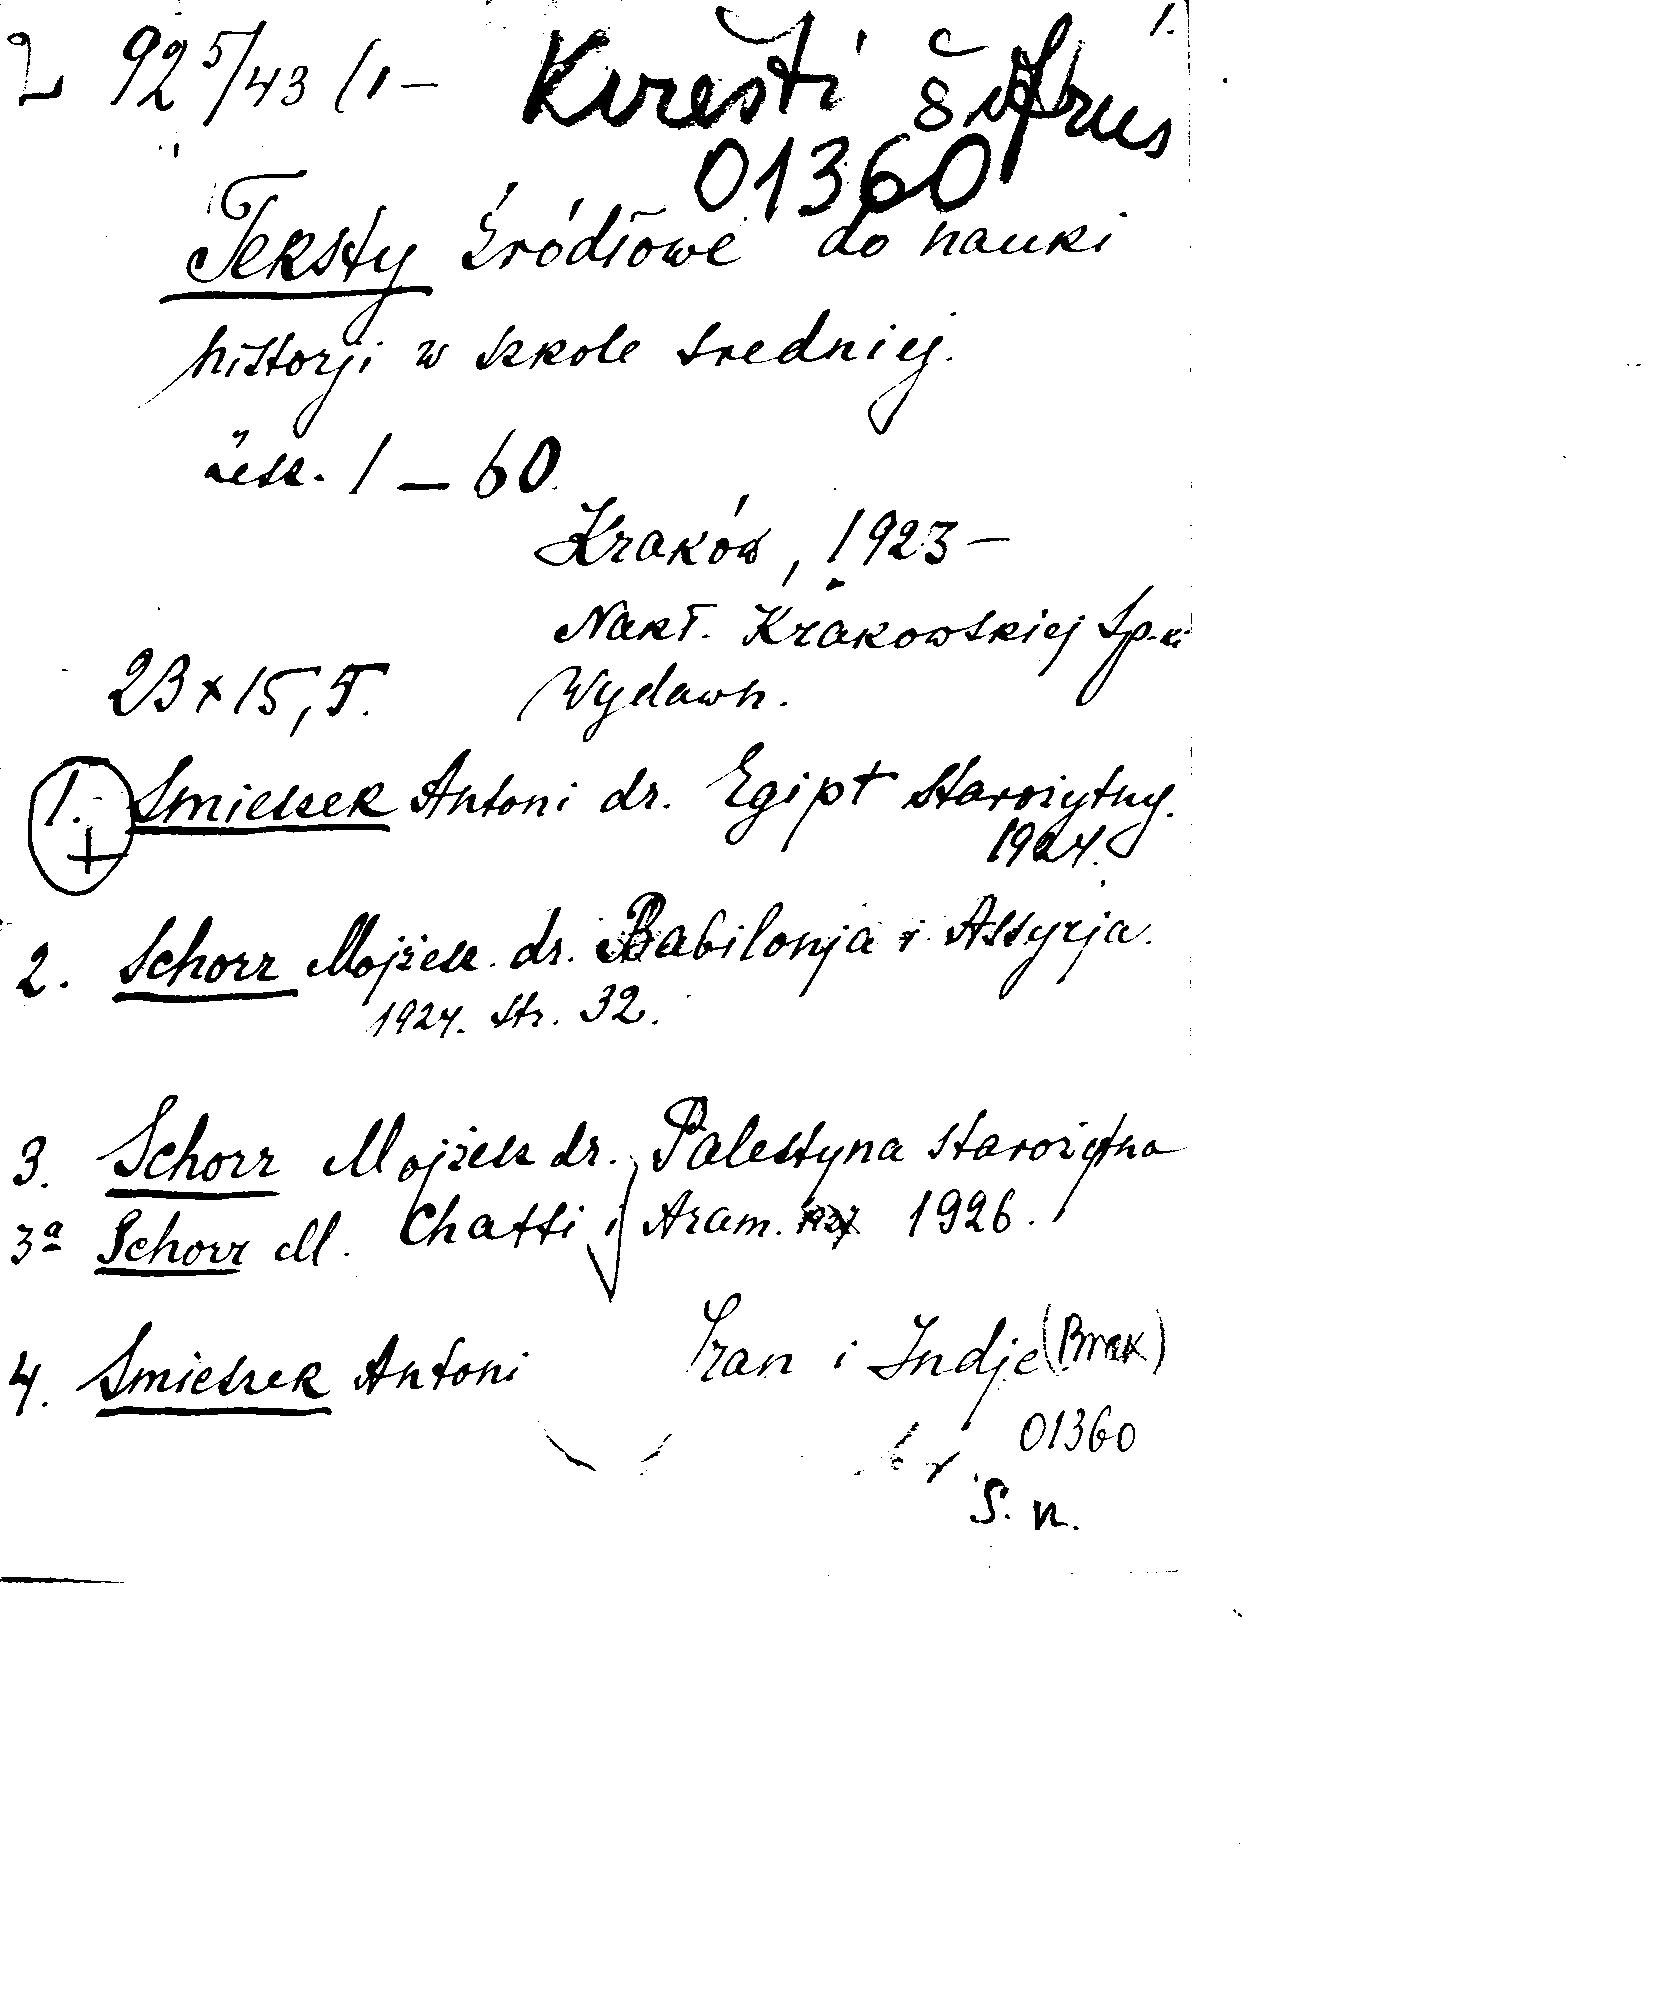 2 92 5/43 (1 – Kviesti šifrus 1.
01360
Teksty źródłowe do nauki
historji w szkole średniej.
zesz. 1 – 60.
Kraków, 1923 –
Nakł. Krakowskiej Sp-ki
23 x 15,5. Wydawn.
1. Smieszek Antoni dr. Egipt starożytny.
1924.
2. Schorr Mojżesz. dr. Babilonja i Assyrja.
1924. str. 32.
3. Schorr Mojżesz dr. Palestyna starożytna
3a Schorr M. Chatti i Aram. 1927 1926.
4. Smieszek Antoni Iran i Indje (Brak)
01360
S. n.